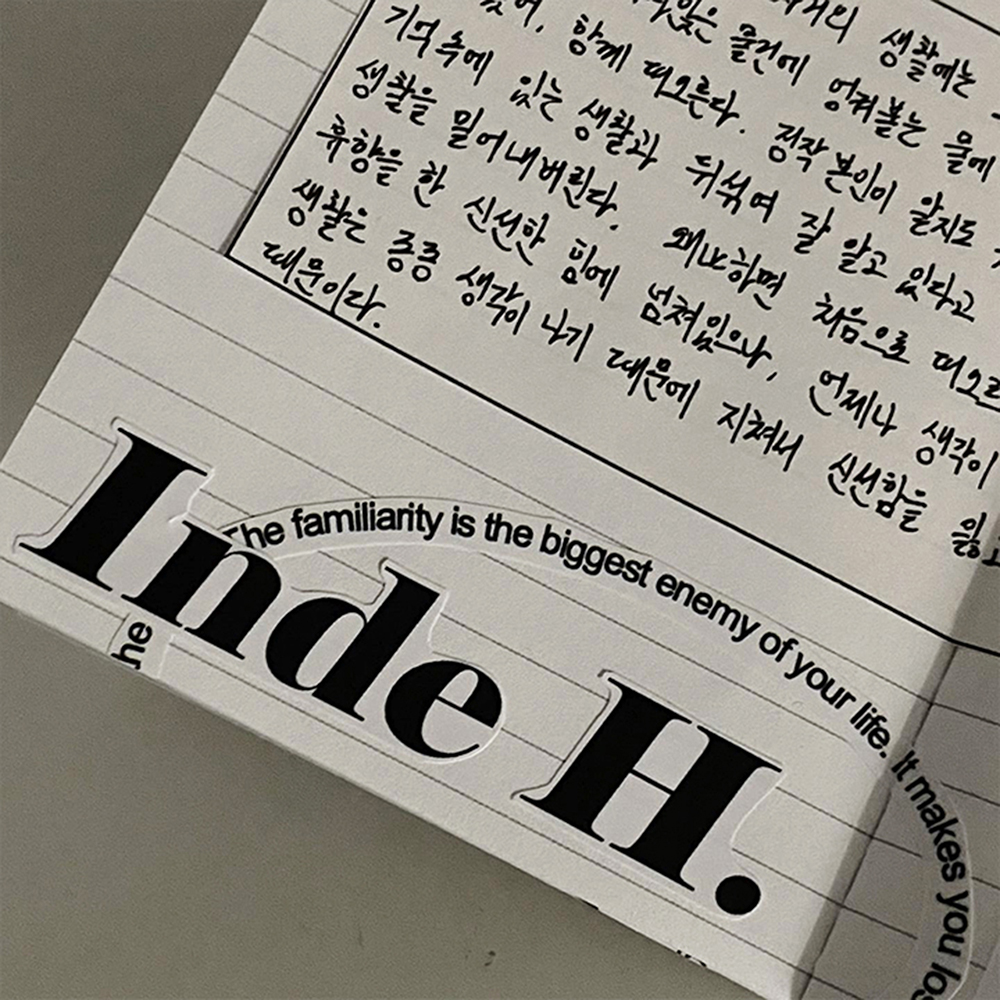 생활에는
물건에 엉겨붙는 물에
함께 떠오른다. 정작 본인이 알지도
기억 속에 있는 생활과 뒤섞여 잘 알고 있다고
생활을 밀어내버린다. 왜냐하면 처음으로
휴향을 한 신선한 힘에 넘쳐있으나, 언제나 생각이
생활은 종종 생각이 나기 때문에 지쳐서 신선함을 잃고
때문이다.
The familiarity is the biggest enemy of your life. It makes you
Inde H.